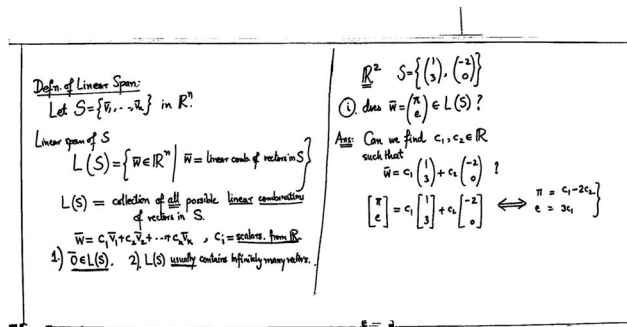 Defn. of Linear Span:
Let S={v̄₁,..,v̄ₖ} in ℝⁿ.
Linear span of S
L(S)={w̄∈ℝⁿ | w̄ = linear comb. of vectors in S}
L(S) = collection of all possible linear combinations
of vectors in S.
w̄ = c₁v̄₁+c₂v̄₂+···+cₖv̄ₖ , cᵢ = scalars from ℝ.
1.) 0̄∈L(S). 2.) L(S) usually contains infinitely many vectors.
ℝ² S={(1 3), (-2 0)}
(i). does w̄=(π e)∈L(S)?
Ans: Can we find c₁,c₂∈ℝ
such that
w̄=c₁(1 3)+c₂(-2 0) ?
[π e]=c₁[1 3]+c₂[-2 0] ⟺ π = c₁-2c₂
e = 3c₁ }